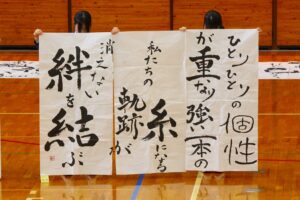 ひとつひとつの個性
が重なり強い一本の
糸になる
私たちの
軌跡が
消えない
絆を結ぶ